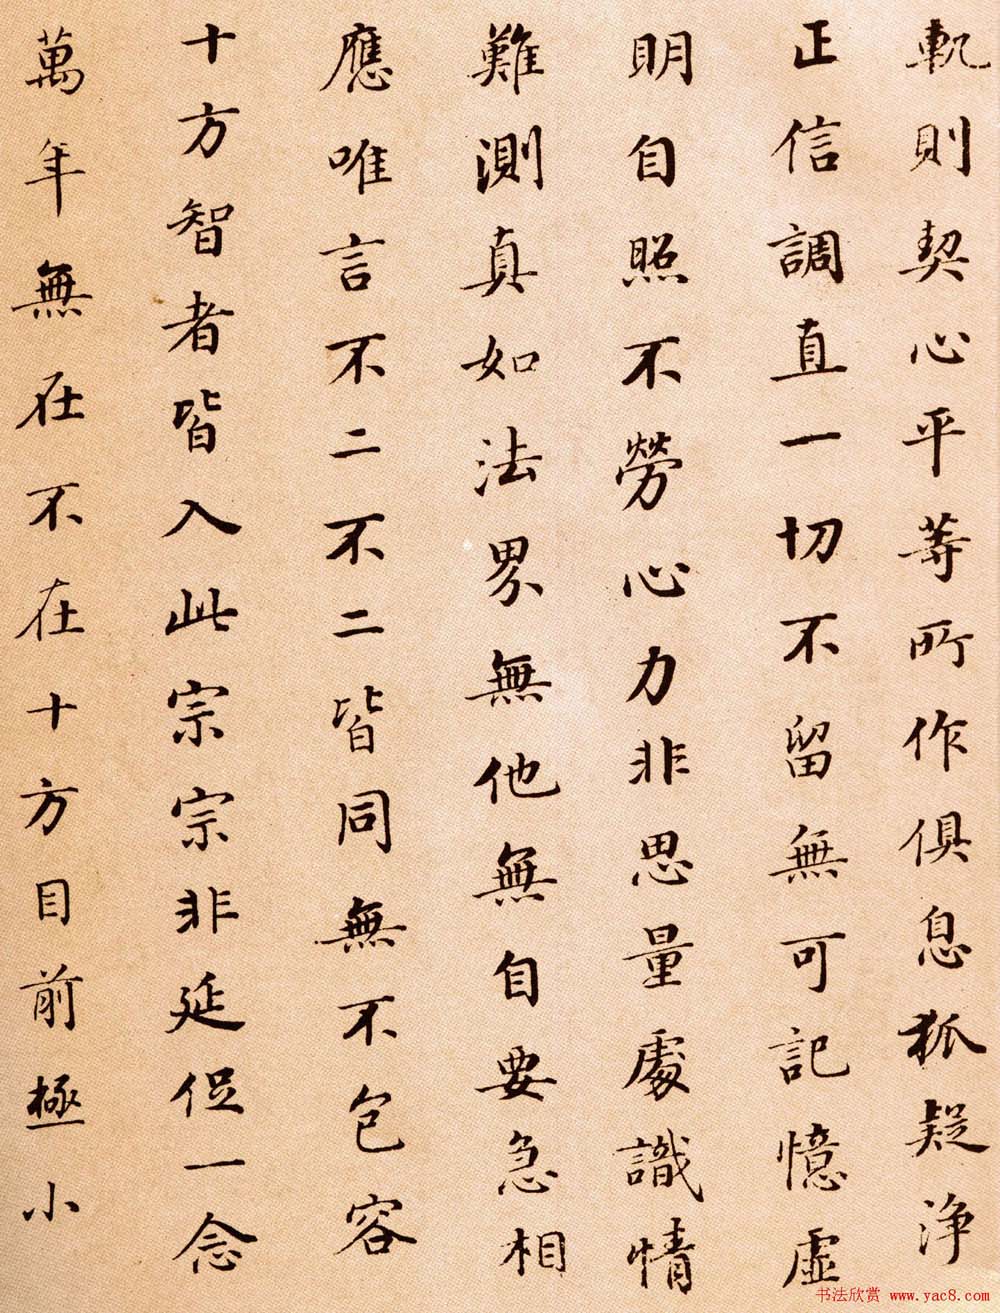 軌則契心平等所作俱息狐疑浄
正信調直一切不留無可記憶虛
明自照不勞心力非思量處識情
難測真如法界無他無自要急相
應唯言不二不二皆同無不包容
十方智者皆入此宗宗非延促一念
萬年無在不在十方目前極小
书法欣赏 www.yac8.com